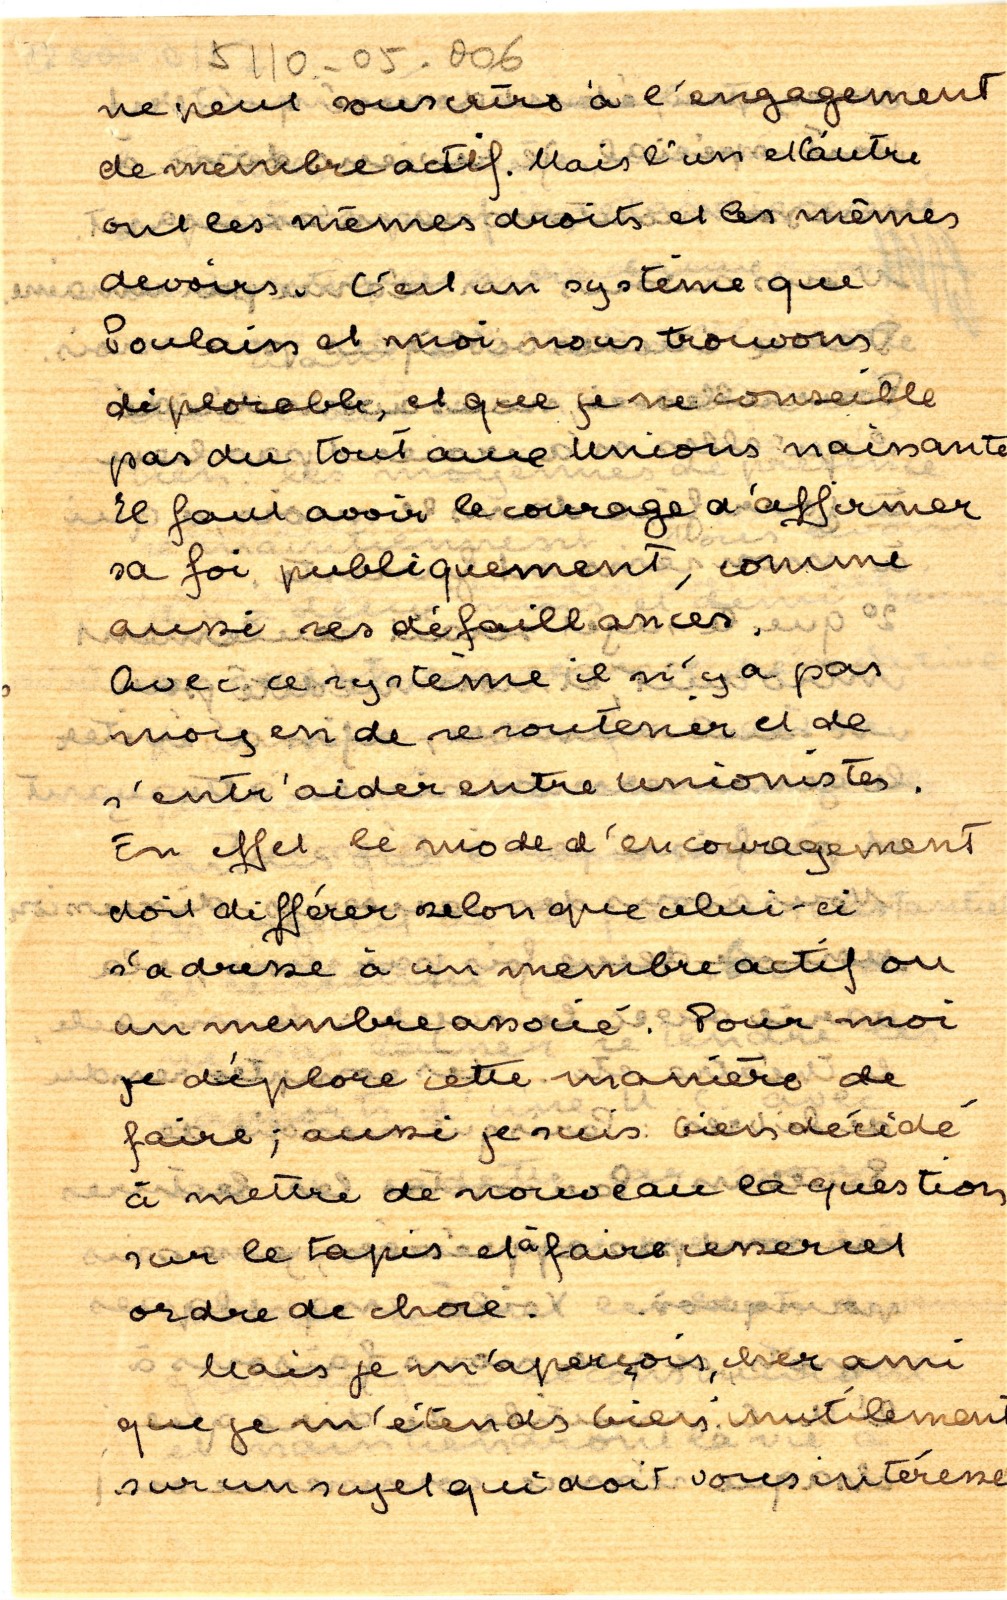 5110-05.006
ne peut souscrire à l'engagement
de membre actif. Mais l'un et l'autre
ont les mêmes droits et les mêmes
devoirs. C'est un système que
Poulain et moi nous trouvons
déplorable, et que je ne conseille
pas du tout aux Unions naissante
Il faut avoir le courage d'affirmer
sa foi publiquement, comme
aussi ses défaillances.
Avec ce système il n'y a pas
moyen de se soutenir et de
s'entr'aider entre Unionistes.
En effet le mode d'encouragement
doit différer selon que celui-ci
s'adresse à un membre actif ou
un membre associé. Pour moi
je déplore cette manière de
faire; aussi je suis bien décidé
à mettre de nouveau la question
sur le tapis et à faire cesser cet
ordre de chose.
Mais je m'aperçois, cher ami
que je m'étends bien inutilement
sur un sujet qui doit vous intéresse